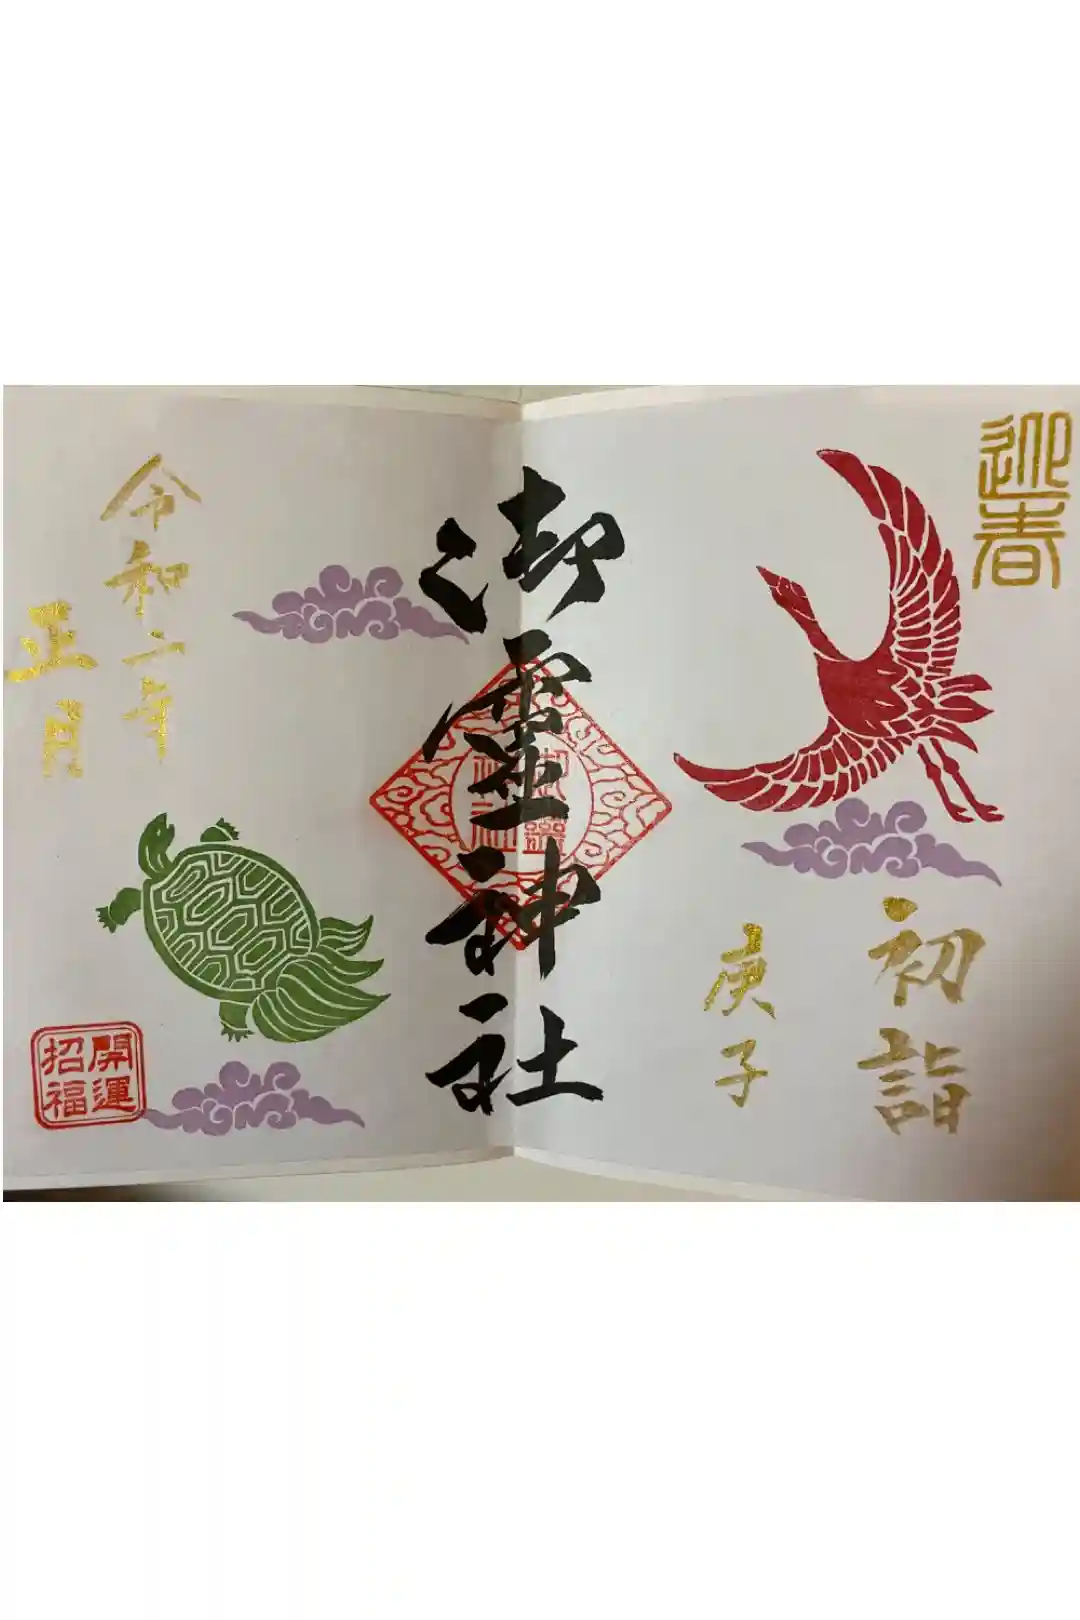 迎春
初詣
庚子
御霊神社
御靈
神社
令和二年
正月
開運
招福